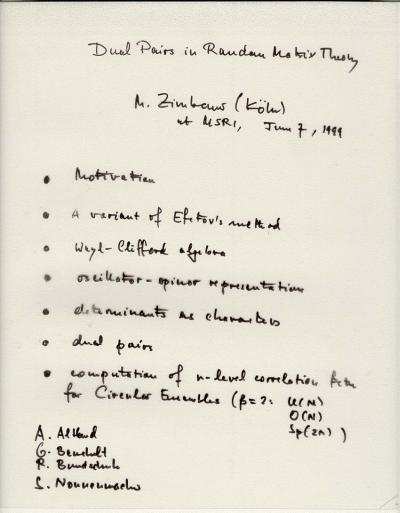 Dual Pairs in Random Matrix Theory
M. Zirnbauer (Köln)
at MSRI, June 7, 1999
• Motivation
• A variant of Efetov's method
• Weyl-Clifford algebra
• oscillator-spinor representation
• determinants as characters
• dual pairs
• computation of n-level correlation fctn
for Circular Ensembles (β=2: U(N)
O(N)
Sp(2N) )
A. Altland
G.
R. Bundschuh
S. Nonnenmacher